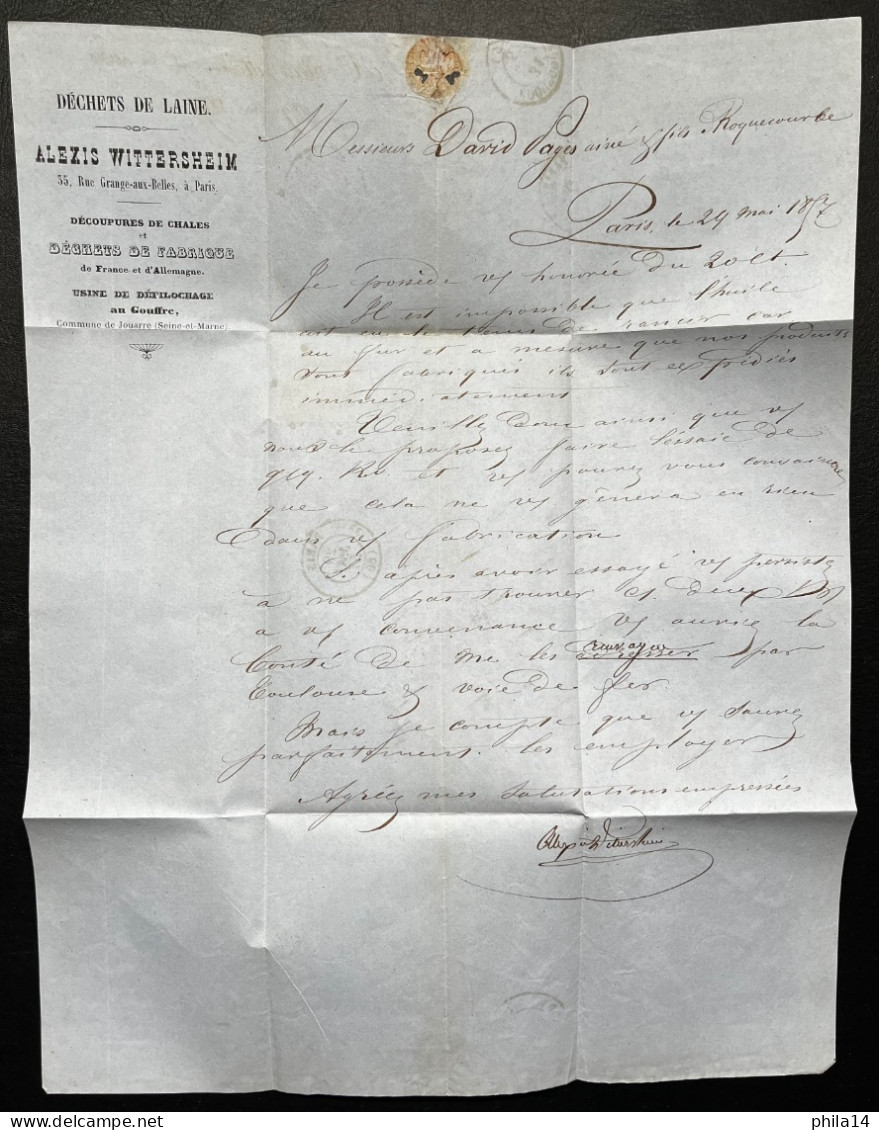 DÉCHETS DE LAINE.
ALEXIS WITTERSHEIM
35, Rue Grange-aux-Belles, à Paris.
DÉCOUPURES DE CHALES
et
DÉCHETS DE FABRIQUE
de France et d'Allemagne.
USINE DE DÉFILOCHAGE
au Gouffre,
Commune de Jouarre (Seine-et-Marne)
Messieurs David Pagès ainé & fils Roquecourbe
Paris, le 24 mai 1857
Je possède vs honorée du 20 ct.
Il est impossible que l'huile
ait eu le tems de rancir car
au fur et a mesure que nos produits
sont fabriqués ils sont expédiés
immédiatement
Veuillez donc ainsi que vs
nous le proposez faire l'éssaie de
qlq. Ko. et vs pourez vous convaincre
que cela ne vs génera en rien
dans vs fabrication
Si après avoir essayé vs persistez
a ne pas trouver cs. deux
a vs convenance vs auriez la
bonté de me les renvoyer par
Toulouse & voie de fer.
Mais je compte que vs saurez
parfaitement les employer
Agréez mes salutations empressées
Alexis Wittersheim
phila14